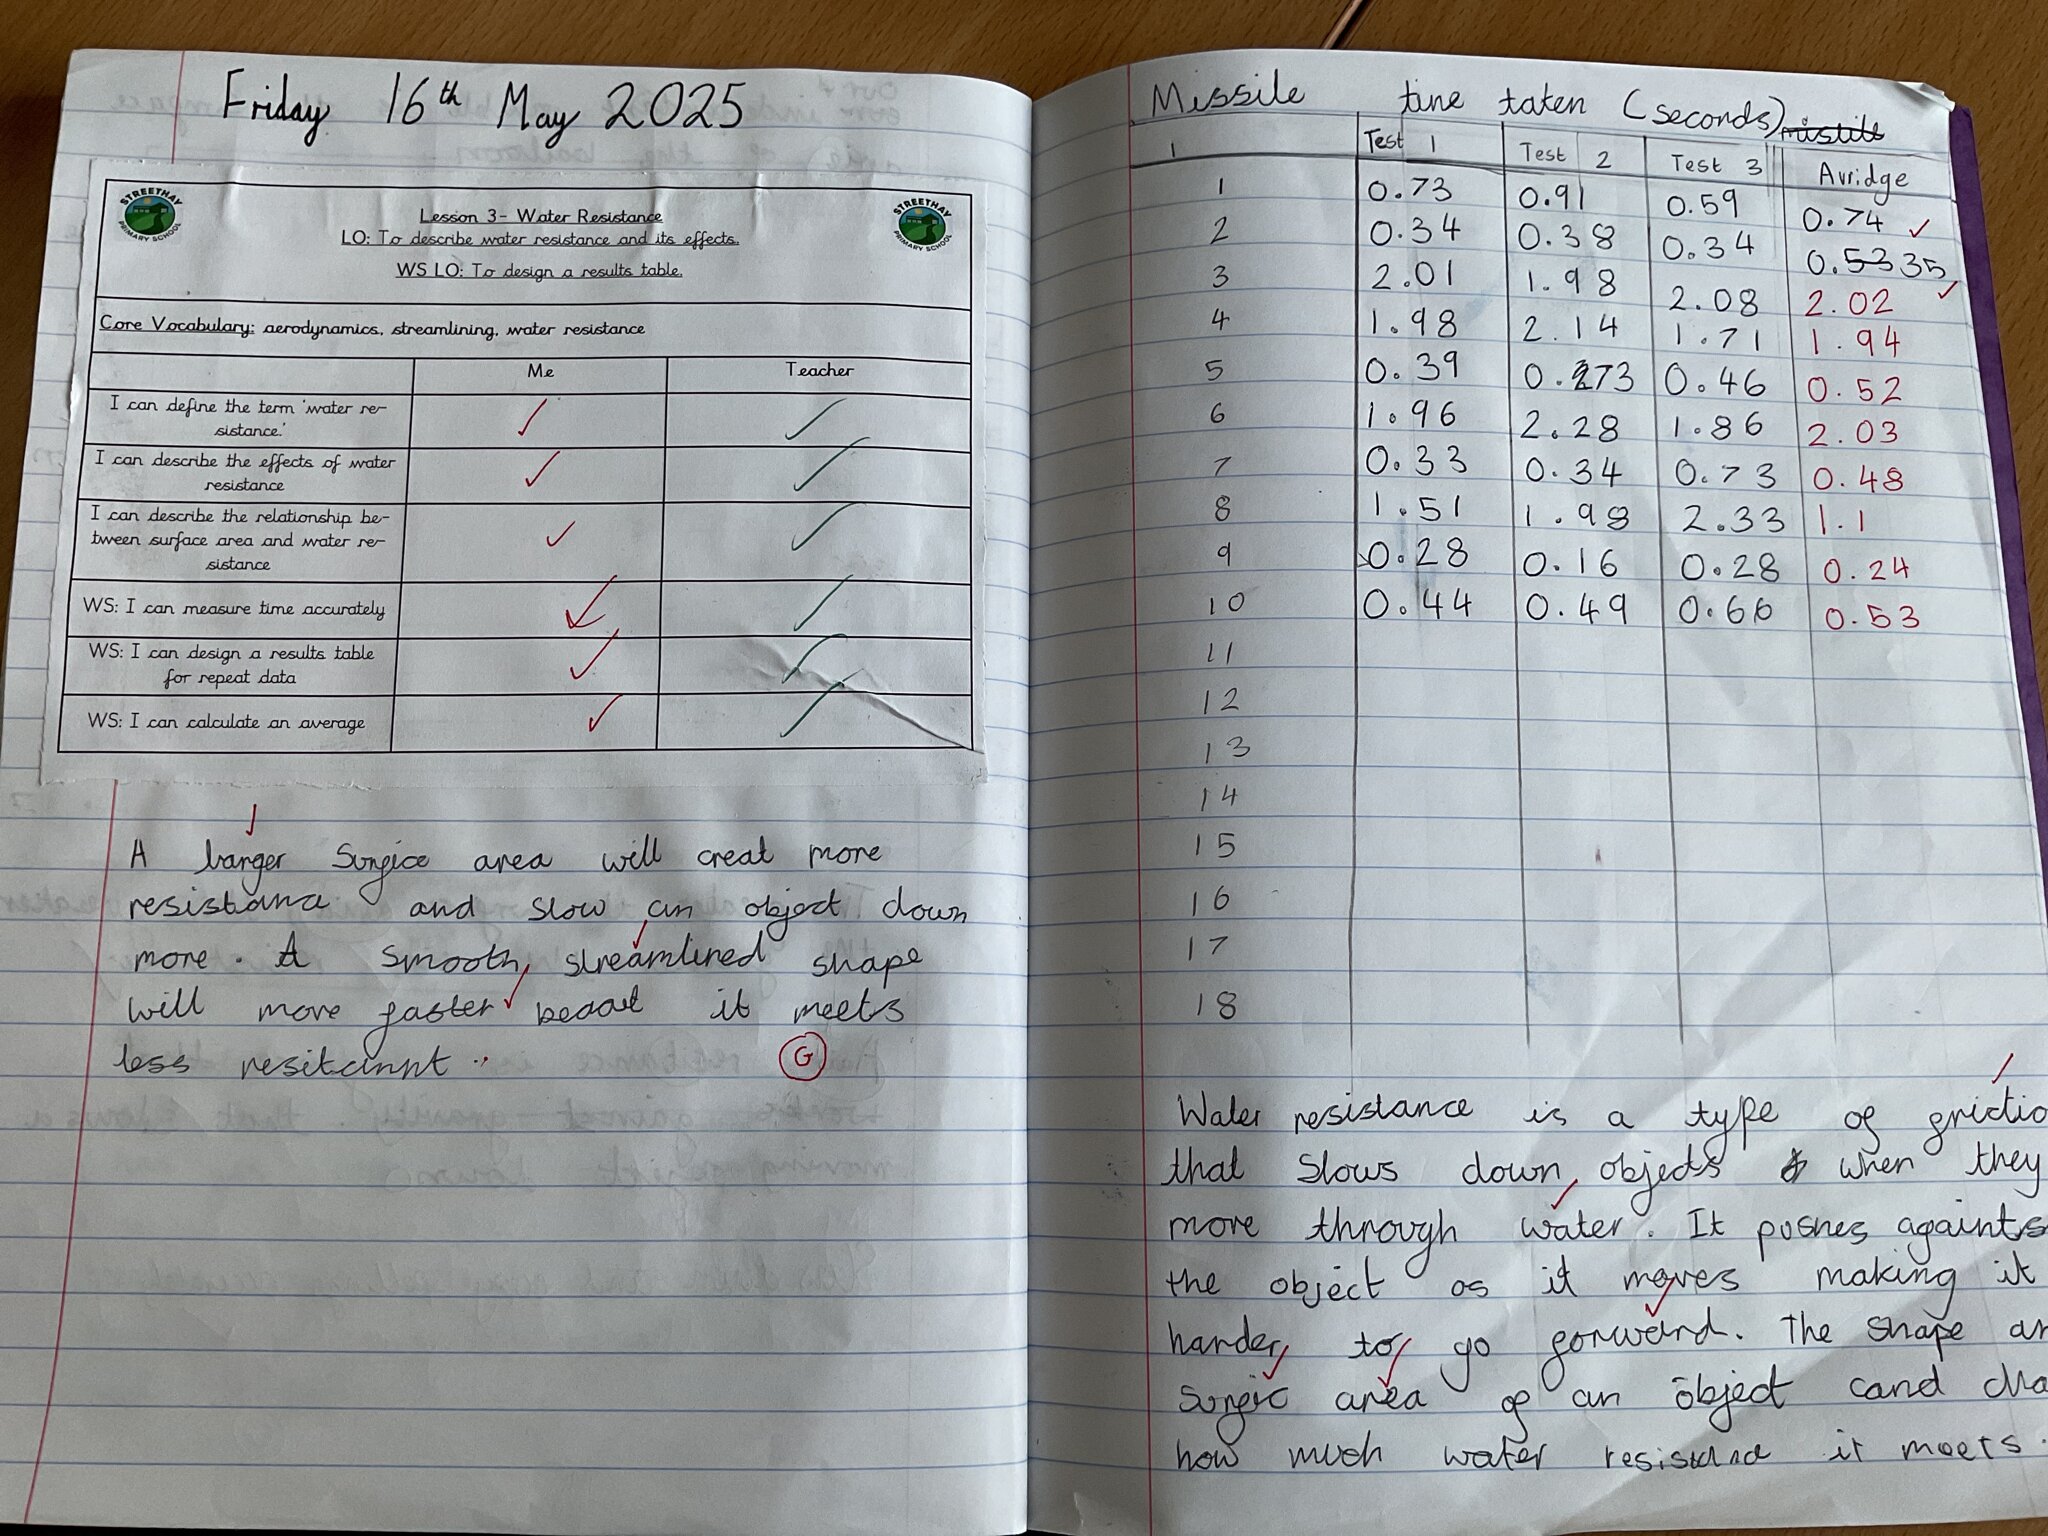 Friday 16th May 2025
STREETHAY PRIMARY SCHOOL
STREETHAY PRIMARY SCHOOL
Lesson 3- Water Resistance
LO: To describe water resistance and its effects.
WS LO: To design a results table.
Core Vocabulary: aerodynamics, streamlining, water resistance
Me Teacher
I can define the term 'water re-
sistance.'
I can describe the effects of water
resistance
I can describe the relationship be-
tween surface area and water re-
sistance
WS: I can measure time accurately
WS: I can design a results table
for repeat data
WS: I can calculate an average
A larger surgice area will creat more
resistance and slow an object down
more. A smooth, streamlined shape
will more faster it meets
less resitannt.
G
Missile time taken (seconds)
1 Test 1 Test 2 Test 3 Avridge
1 0.73 0.91 0.59 0.74
2 0.34 0.38 0.34 0.35
3 2.01 1.98 2.08 2.02
4 1.98 2.14 1.71 1.94
5 0.39 0.73 0.46 0.52
6 1.96 2.28 1.86 2.03
7 0.33 0.34 0.73 0.48
8 1.51 1.98 2.33 1.1
9 0.28 0.16 0.28 0.24
10 0.44 0.49 0.66 0.53
11
12
13
14
15
16
17
18
Water resistance is a type of grictio
that slows down objects when they
more through water. It pushes againts
the object as it moves making it
harder to go gorward. The shape an
surgic area of an object cand cha
how much water resistance it meets.